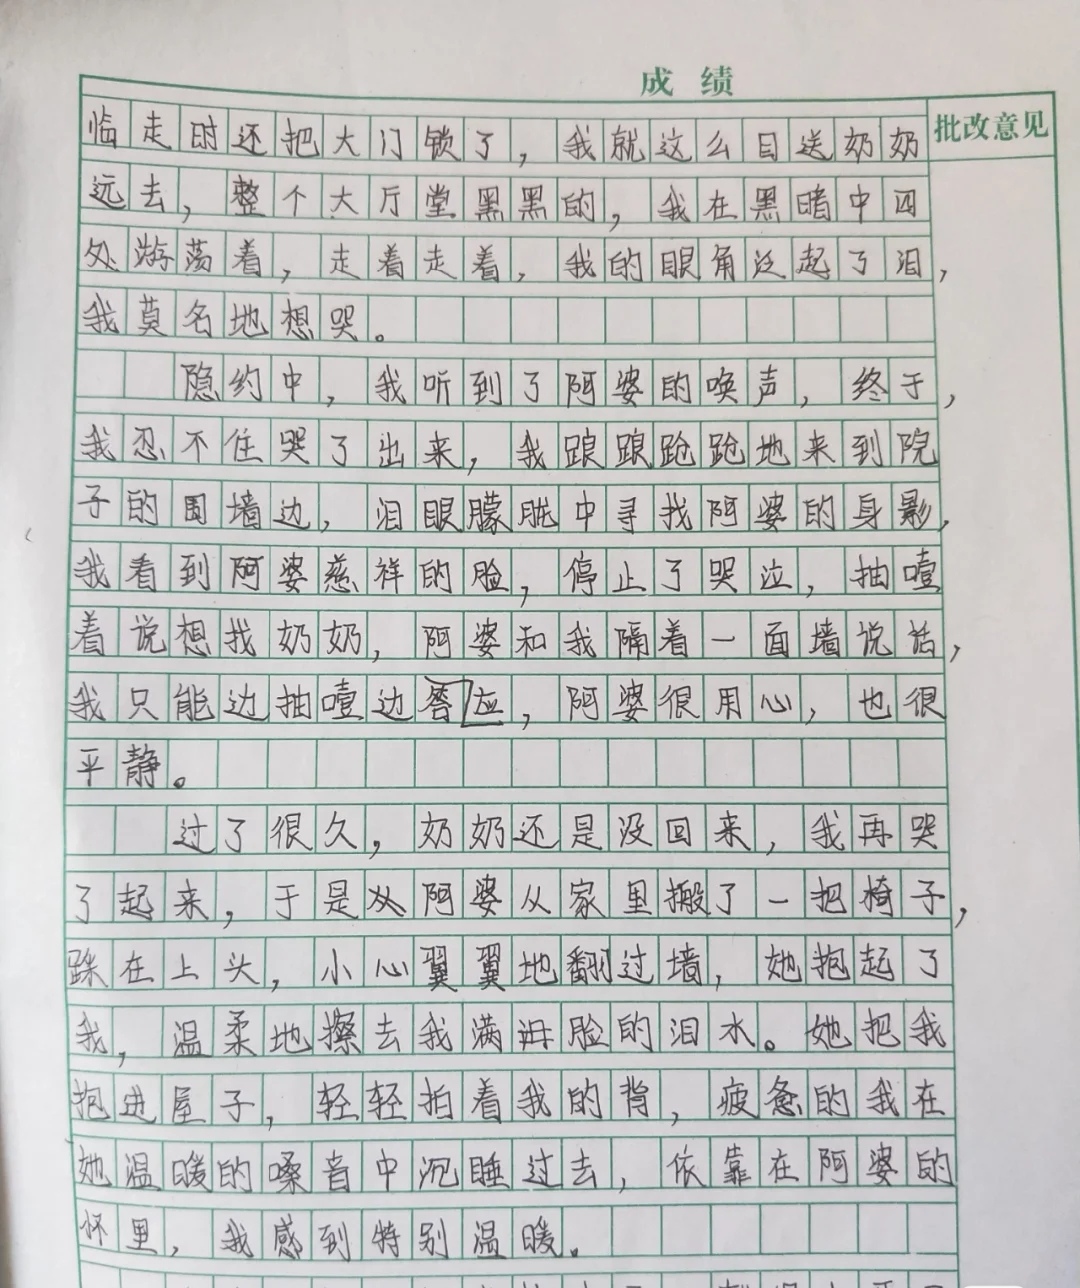 成绩
批改意见
临走时还把大门锁了，我就这么目送奶奶
远去，整个大厅堂黑黑的，我在黑暗中四
处游荡着，走着走着，我的眼角泛起了泪，
我莫名地想哭。
隐约中，我听到了阿婆的唤声，终于，
我忍不住哭了出来，我踉踉跄跄地来到院
子的围墙边，泪眼朦胧中寻找阿婆的身影，
我看到阿婆慈祥的脸，停止了哭泣，抽噎
着说想找奶奶，阿婆和我隔着一面墙说话，
我只能边抽噎边答应，阿婆很用心，也很
平静。
过了很久，奶奶还是没回来，我再哭
了起来，于是阿婆从家里搬了一把椅子，
跺在上头，小心翼翼地翻过墙，她抱起了
我，温柔地擦去我满脸的泪水。她把我
抱进屋子，轻轻拍着我的背，疲惫的我在
她温暖的嗓音中沉睡过去，依靠在阿婆的
怀里，我感到特别温暖。